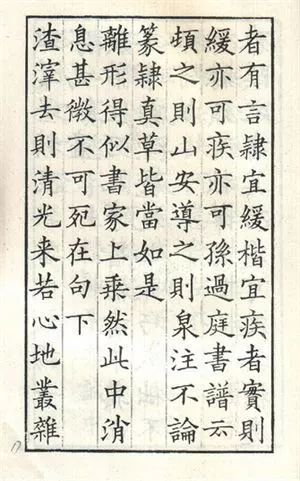 者有言隷宜緩楷宜疾者實則
緩亦可疾亦可孫過庭書譜云
頓之則山安導之則泉注不論
篆隷真草皆當如是
離形得似書家上乘然此中消
息甚微不可死在句下
渣滓去則清光来若心地叢雜